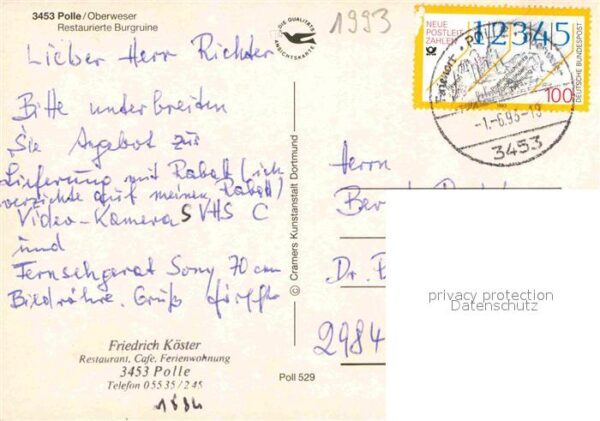 3453 Polle/Oberweser
Restaurierte Burgruine
DIE QUALITÄTS
ANSICHTSKARTE
1993
NEUE
POSTLEIT
ZAHLEN
12345
100
DEUTSCHE BUNDESPOST
POLLE
-1.-6.93-18
3453
Lieber Herr Richter
Bitte unterbreiten
Sie Angebot zur
Lieferung mit Rabat (ich
verzichte auf meinen Rabatt)
Video-Kamera SVHS C
und
Fernsehgerät Sony 70 cm
Bildröhre. Gruß
© Cramers Kunstanstalt Dortmund
Herrn
Dr.
2984
Friedrich Köster
Restaurant, Cafe, Ferienwohnung
3453 Polle
Telefon 0 55 35 / 2 45
Poll 529
privacy protection
Datenschutz